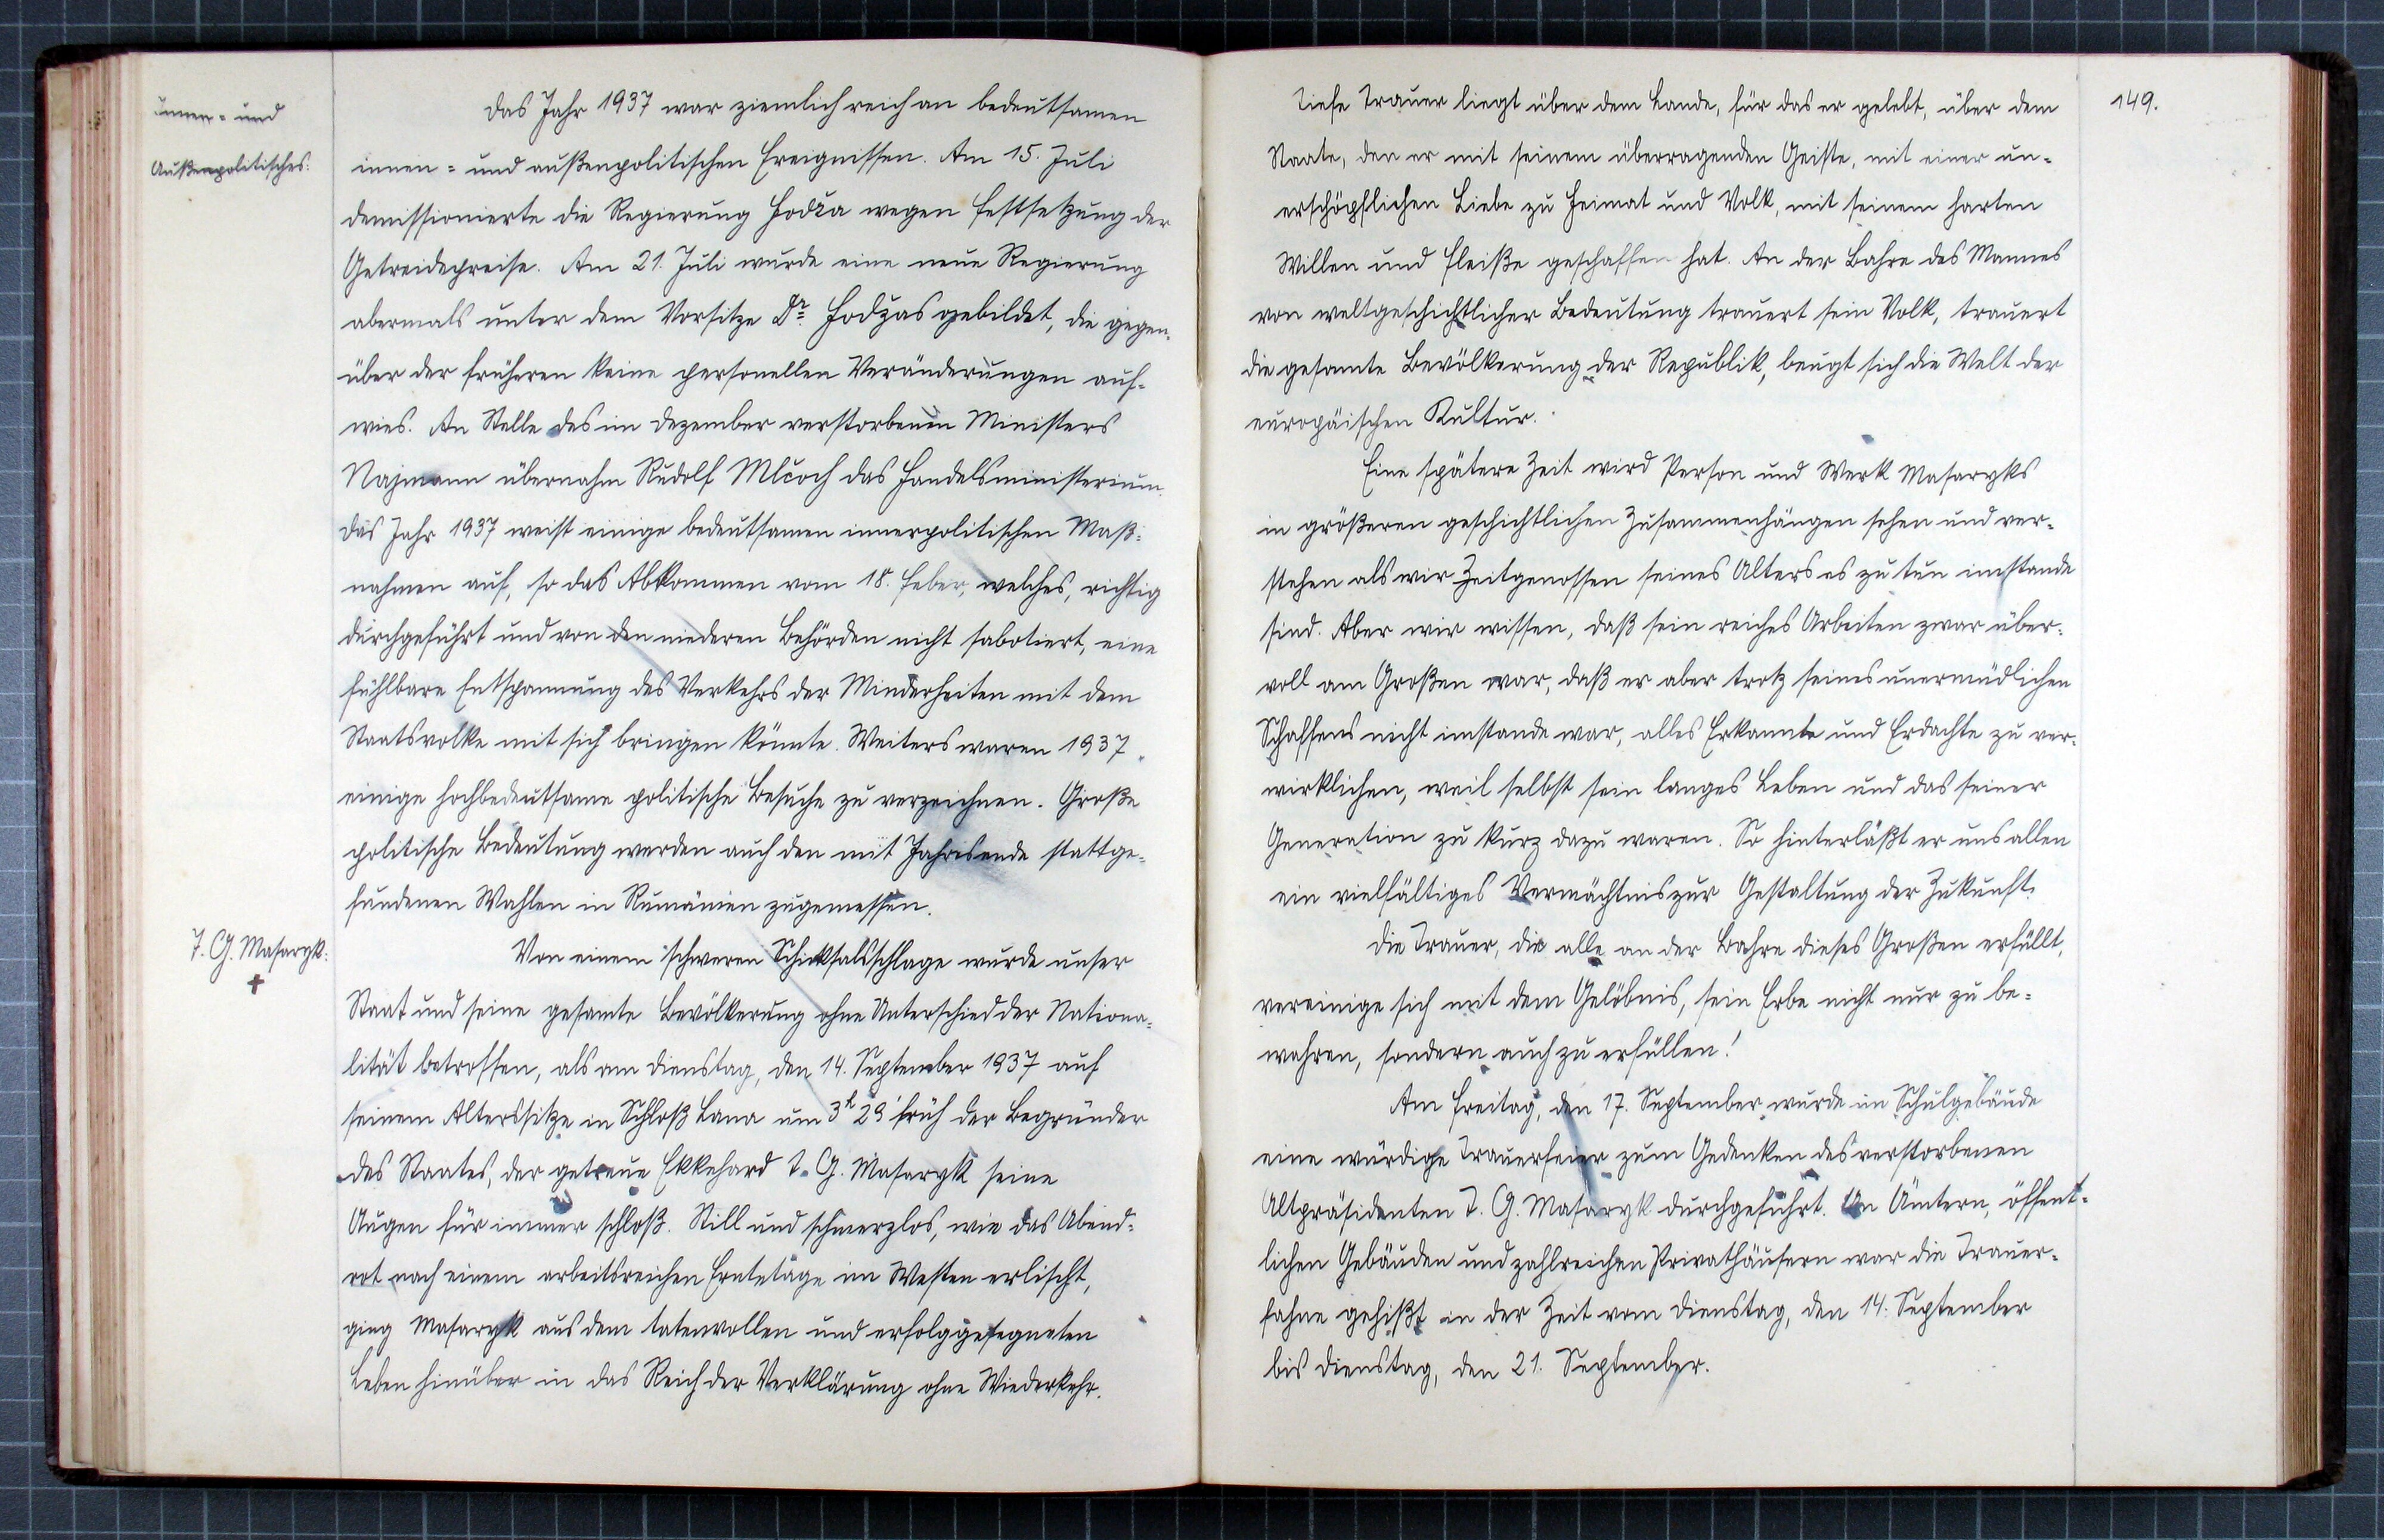 Innen- und
Außenpolitisches:
Das Jahr 1937 war ziemlich reich an bedeutsamen
innen- und außenpolitischen Ereignissen. Am 15. Juli
demissionierte die Regierung Hodža wegen Festsetzung der
Getreidepreise. Am 21. Juli wurde eine neue Regierung
abermals unter dem Vorsitze Dr. Hodžas gebildet, die gegen-
über der früheren keine personellen Veränderungen auf-
wies. An Stelle des im Dezember verstorbenen Ministers
Najmann übernahm Rudolf Mlčoch das Handelsministerium.
Das Jahr 1937 weist einige bedeutsamen innerpolitischen Maß-
nahmen auf, so das Abkommen vom 18. Feber, welches, richtig
durchgeführt und von den niederen Behörden nicht sabotiert, eine
fühlbare Entspannung des Verkehrs der Minderheiten mit dem
Staatsvolke mit sich bringen könnte. Weiters waren 1937
einige hochbedeutsame politische Besuche zu verzeichnen. Große
politische Bedeutung werden auch den mit Jahresende stattge-
fundenen Wahlen in Rumänien zugemessen.
T. G. Masaryk:
✝
Von einem schweren Schicksalsschlage wurde unser
Staat und seine gesamte Bevölkerung ohne Unterschied der Nationa-
lität betroffen, als am Dienstag, den 14. September 1937 auf
seinem Alterssitze in Schloß Lana um 3h 29' früh der Begründer
des Staates, der getreue Ekkehard T. G. Masaryk seine
Augen für immer schloß. Still und schmerzlos, wie das Abend-
rot nach einem arbeitsreichen Erntetage im Westen erlischt,
ging Masaryk aus dem tatenvollen und erfolggesegneten
Leben hinüber in das Reich der Verklärung ohne Wiederkehr.
149.
Tiefe Trauer liegt über dem Lande, für das er gelebt, über dem
Staate, den er mit seinem überragenden Geiste, mit einer un-
erschöpflichen Liebe zu Heimat und Volk, mit seinem harten
Willen und Fleiße geschaffen hat. An der Bahre des Mannes
von weltgeschichtlicher Bedeutung trauert sein Volk, trauert
die gesamte Bevölkerung der Republik, beugt sich die Welt der
europäischen Kultur.
Eine spätere Zeit wird Person und Werk Masaryks
in größeren geschichtlichen Zusammenhängen sehen und ver-
stehen als wir Zeitgenossen seines Alters es zu tun imstande
sind. Aber wir wissen, daß sein reiches Arbeiten zwar über-
voll am Großen war, daß er aber trotz seines unermüdlichen
Schaffens nicht imstande war, alles Erkannte und Erdachte zu ver-
wirklichen, weil selbst sein langes Leben und das seiner
Generation zu kurz dazu waren. So hinterläßt er uns allen
ein vielfältiges Vermächtnis zur Gestaltung der Zukunft.
Die Trauer, die alle an der Bahre dieses Großen erfüllt,
vereinige sich mit dem Gelöbnis, sein Erbe nicht nur zu be-
wahren, sondern auch zu erfüllen!
Am Freitag, den 17. September wurde im Schulgebäude
eine würdige Trauerfeier zum Gedenken des verstorbenen
Altpräsidenten T. G. Masaryk durchgeführt. An Ämtern, öffent-
lichen Gebäuden und zahlreichen Privathäusern war die Trauer-
fahne gehißt in der Zeit vom Dienstag, den 14. September
bis Dienstag, den 21. September.